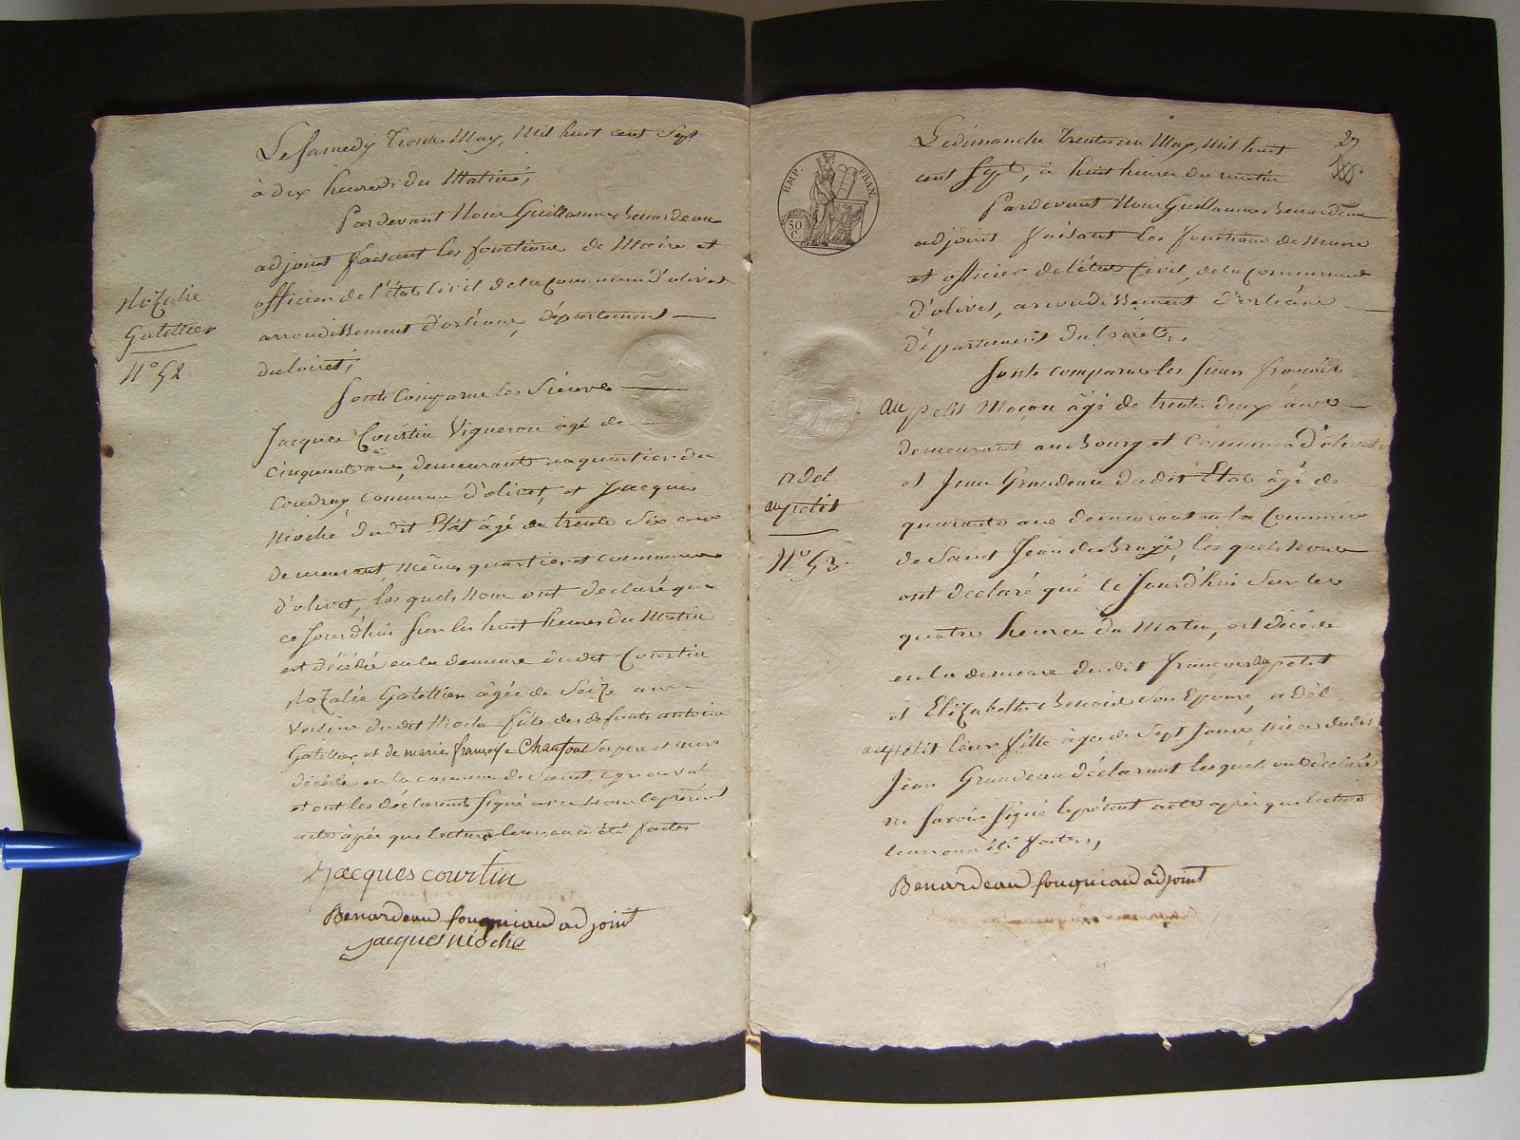 Le Samedy Trente May, Mil huit cent Sept
à dix heures du Matin;
Pardevant Nous Guillaume Benardeau
adjoint faisant les fonctions de Maire et
officier de l'état Civil de la Commune d'olivet
arrondissement d'orléans, département
du loiret;
Sont Comparus les Sieurs
Jacques Courtin Vigneron âgé de
cinquante ans, demeurant au quartier du
Coudray commune d'olivet, et Jacques
Nioche dudit Etat âgé de trente Six ans
demeurant même quartier et commune
d'olivet, les quels Nous ont declaré que
ce Jourd'hui Sur les huit heures du Matin
est décédée en la demeure dudit Courtin
Rozalie Gatellier âgée de Seize ans
Voisine dudit Nioche fille des defunts antoine
Gatellier et de marie françoise Chaufour Ses pere et mere
décédés en la commune de Saint
et ont les déclarants Signé avec nous le présent
acte après que lecture leur en a été faite
Jacques courtin
Benardeau fougniaud adjoint
jacques nioche
Rozalie
Gatellier
N° 52
27
HMP. FRAN.
50
C.
Le dimanche trente un May, Mil huit
cent Sept, à huit heures du matin
Pardevant Nous Guillaume Benardeau
adjoint faisant les fonctions de Maire
et officier de l'état Civil, de la Commune
d'olivet, arrondissement d'orléans
département du Loiret.
Sont comparus les Sieurs françois
Aupetit Maçon âgé de trente deux ans
demeurant au Bourg et Commune d'olivet
et Jean Grandeau dudit Etat âgé de
quarante ans demeurant en la Commune
de Saint Jean de Braye, les quels Nous
ont declaré que ce Jourd'hui Sur les
quatre heures du Matin, est décédée
en la demeure dudit françois Aupetit
et Elizabeth Benoist Son Epouse, adel
aupetit leur fille âgée de Sept Jours, niece dudit
Jean Grandeau déclarant lesquels ont déclaré
ne Savoir Signé le présent acte après que lecture
leur en a été faite,
Benardeau fougniaud adjoint
adel
aupetit
N° 53